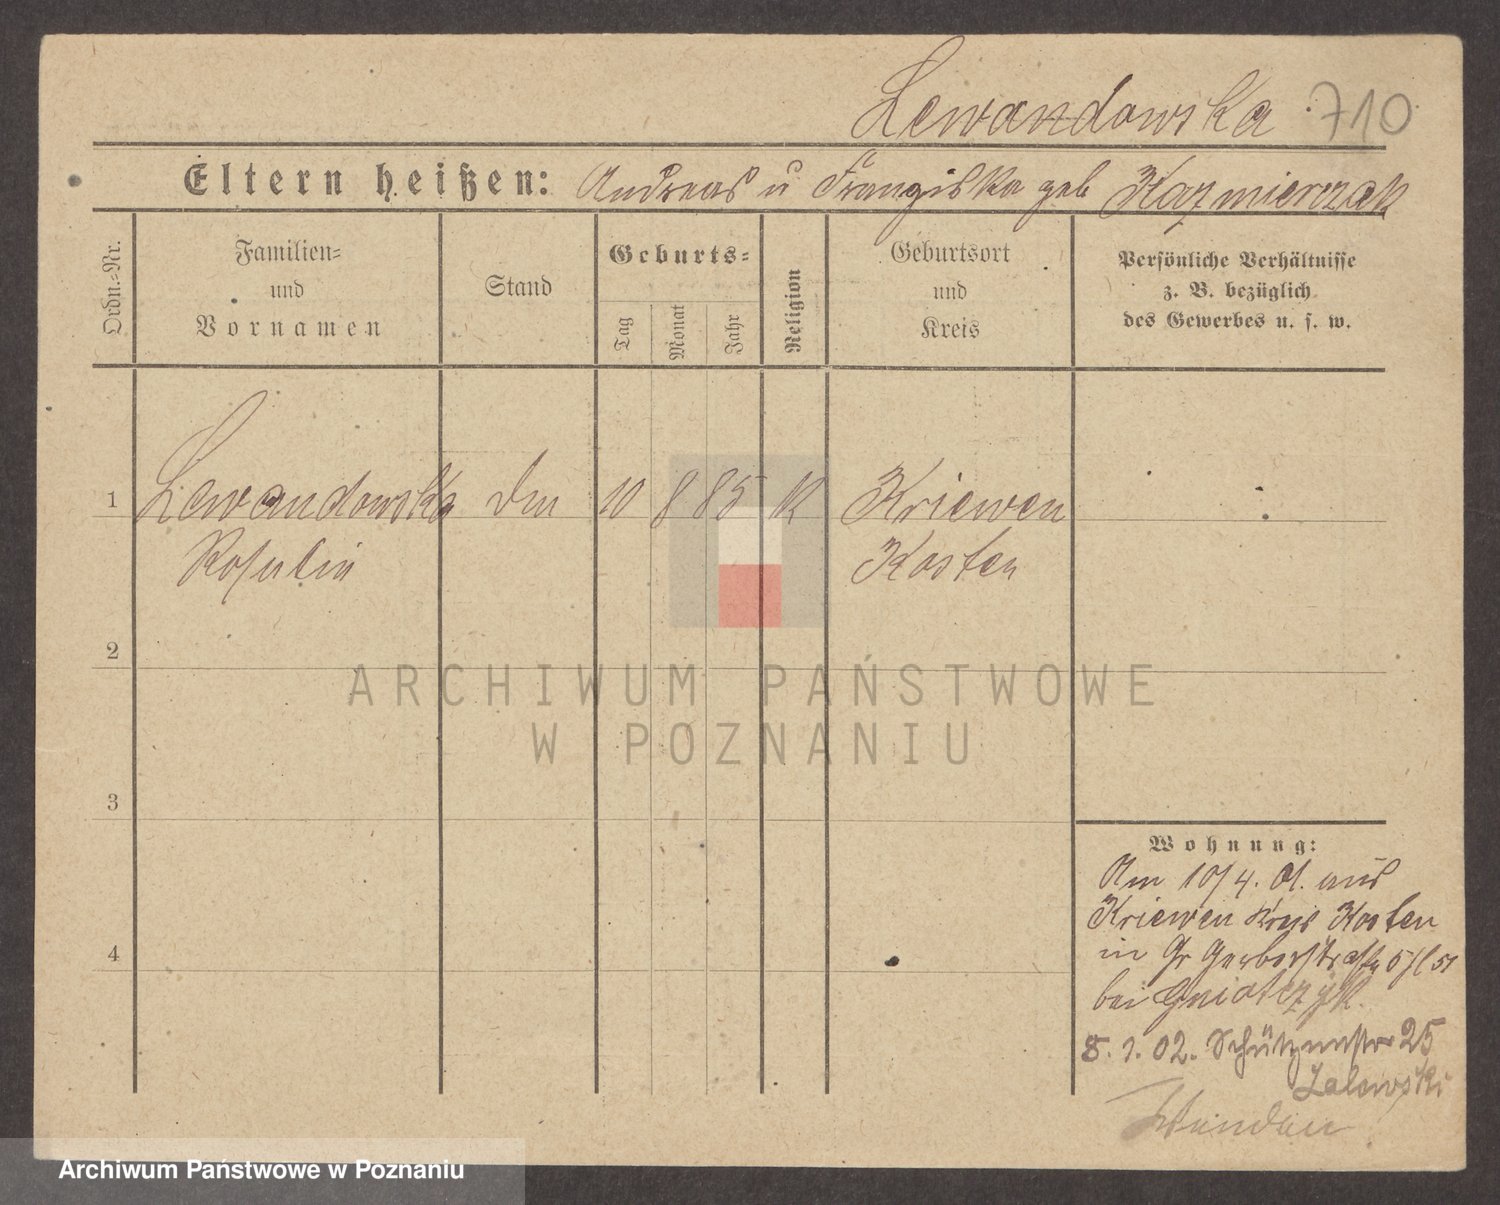 Lewandowska 710
Eltern heißen: Andreas u Franziska geb Kazmierczak
Ordn.=Nr.
Familien=
und
Vornamen
Stand
Geburts=
Tag
Monat
Jahr
Religion
Geburtsort
und
Kreis
Persönliche Verhältnisse
z. B. bezüglich
des Gewerbes u. s. w.
1 Lewandowska 10 8 85 K Kriewen
Rosalie Kosten
2
3
4
Wohnung:
Am 10/4. 01. aus
Kriewen Kreis Kosten
in Gr Gerberstraße
bei Gniotczyk.
8. 1. 02. Schützenstr 25
Zalewski
ARCHIWUM PAŃSTWOWE
W POZNANIU
Archiwum Państwowe w Poznaniu